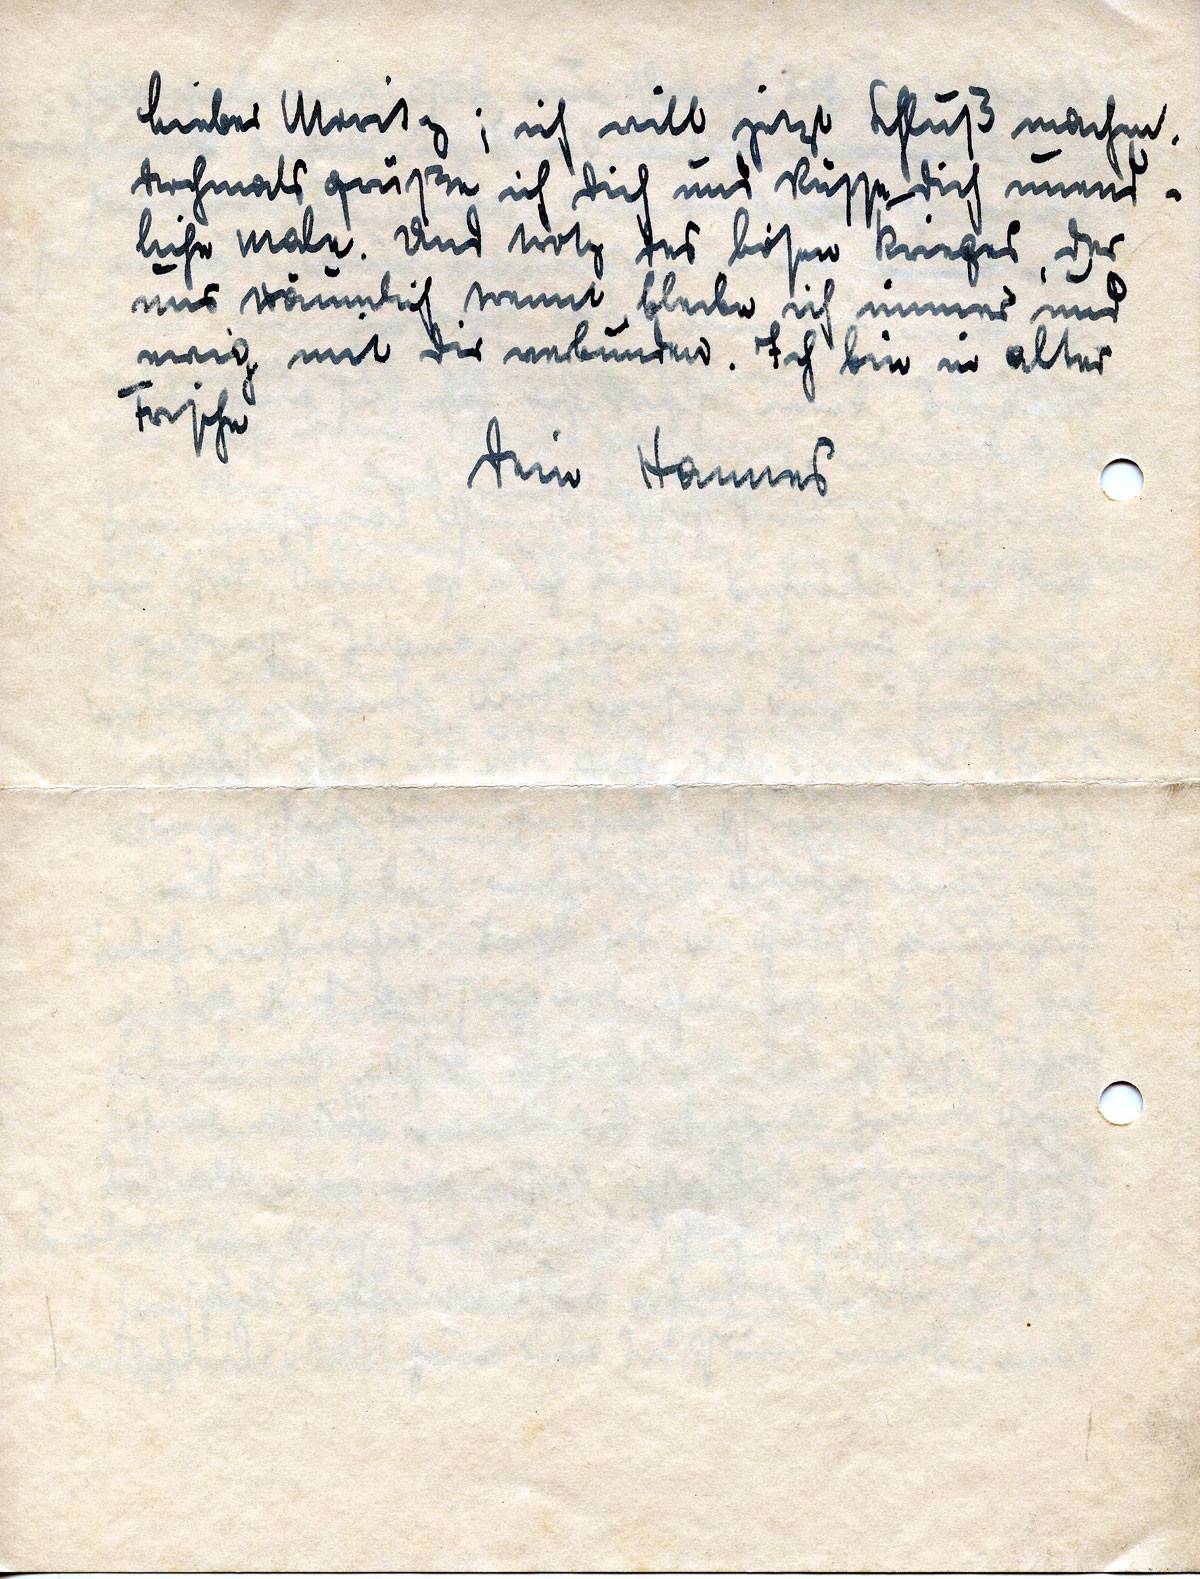 lieber Moritz; ich will jetzt Schluß machen.
Nochmals grüße ich Dich und küsse Dich unend-
liche Male. Und trotz des bösen Krieges, der
uns räumlich trennt, bleibe ich immer und
ewig mit Dir verbunden. Ich bin in alter
Frische
Dein Hannes